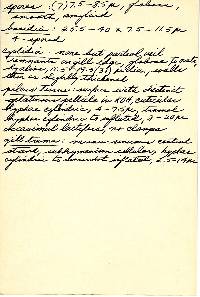 spores: (7) 7.5-8.5 µ, globose,
smooth, amyloid
basidia: 20.5-40 x 7.5-11.5 µ
4-spored
cystidia - none but partial veil
remnants on gill edge, globose to ovate,
hyaline, 11-29 x 9-
thin or slightly thickened
pileus trama: surface with distinct
gelatinous pellicle in KOH, cuticular
hyphae cylindric, 4-7.5 µ, tramal
hyphae cylindric to inflated, 9-20 µ
occasional lactifers, no clamps
gill trama: narrow central
strand, subhymenium cellular, hyphae
cylindric to somewhat inflated, 2.5-14 µ